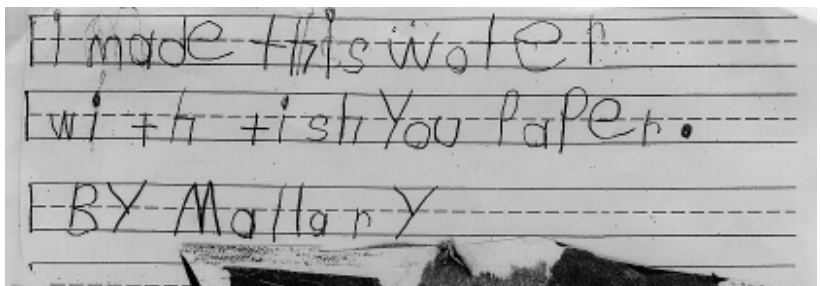 I made this water
with tishYou PaPer.
BY MallarY